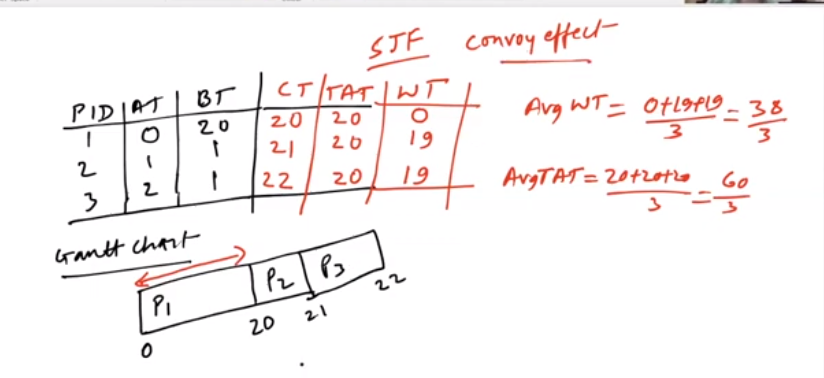 SJF convoy effect
PID AT BT CT TAT WT
1 0 20 20 20 0
2 1 1 21 20 19
3 2 1 22 20 19
Avg WT = 0+19+19/3 = 38/3
AvgTAT = 20+20+20/3 = 60/3
Gantt chart
P1 P2 P3
0 20 21 22